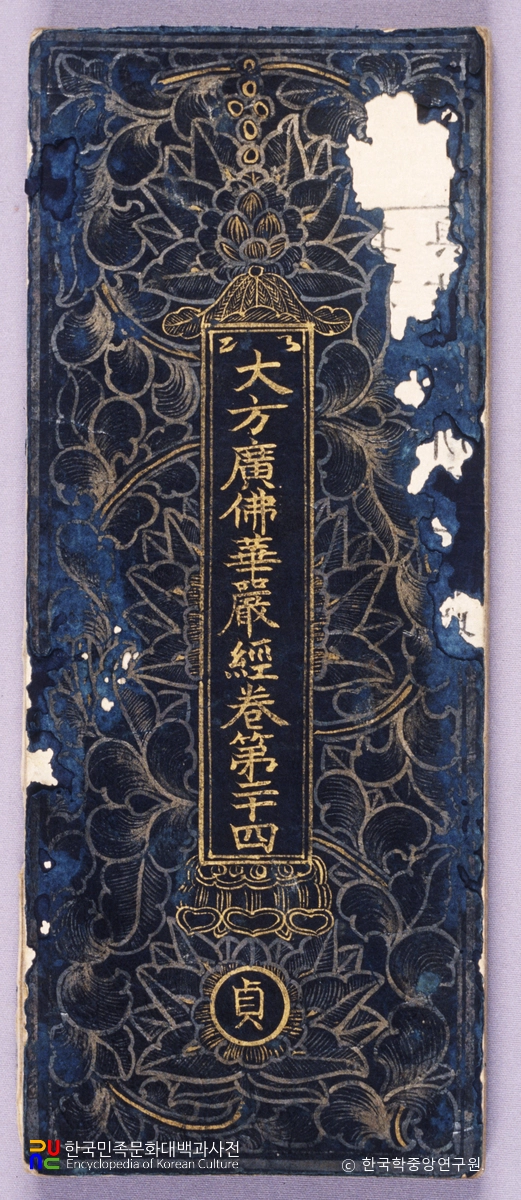 大方廣佛華嚴經卷第二十四
貞
한국민족문화대백과사전
Encyclopedia of Korean Culture
© 한국학중앙연구원